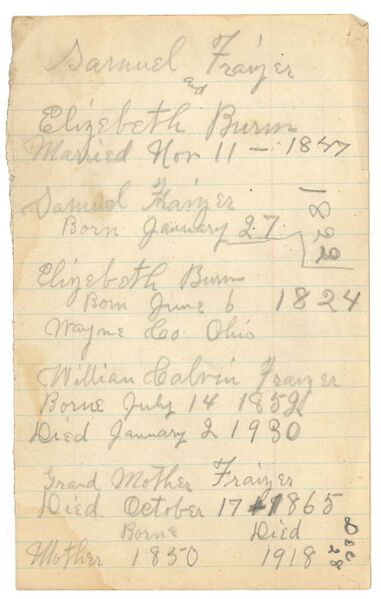 Samuel Fraizer
and
Elizebeth Burm
Married Nov 11 - 1847
Samuel Fraizer
Born January 27
1822
Elizebeth Burm
Born June 6 1824
Wayne Co. Ohio
Willian Calvin Fraizer
Borne July 14 1852
Died January 2 1930
Grand Mother Fraizer
Died October 17 1865
Borne Died
Mother 1850 1918
Dec 28